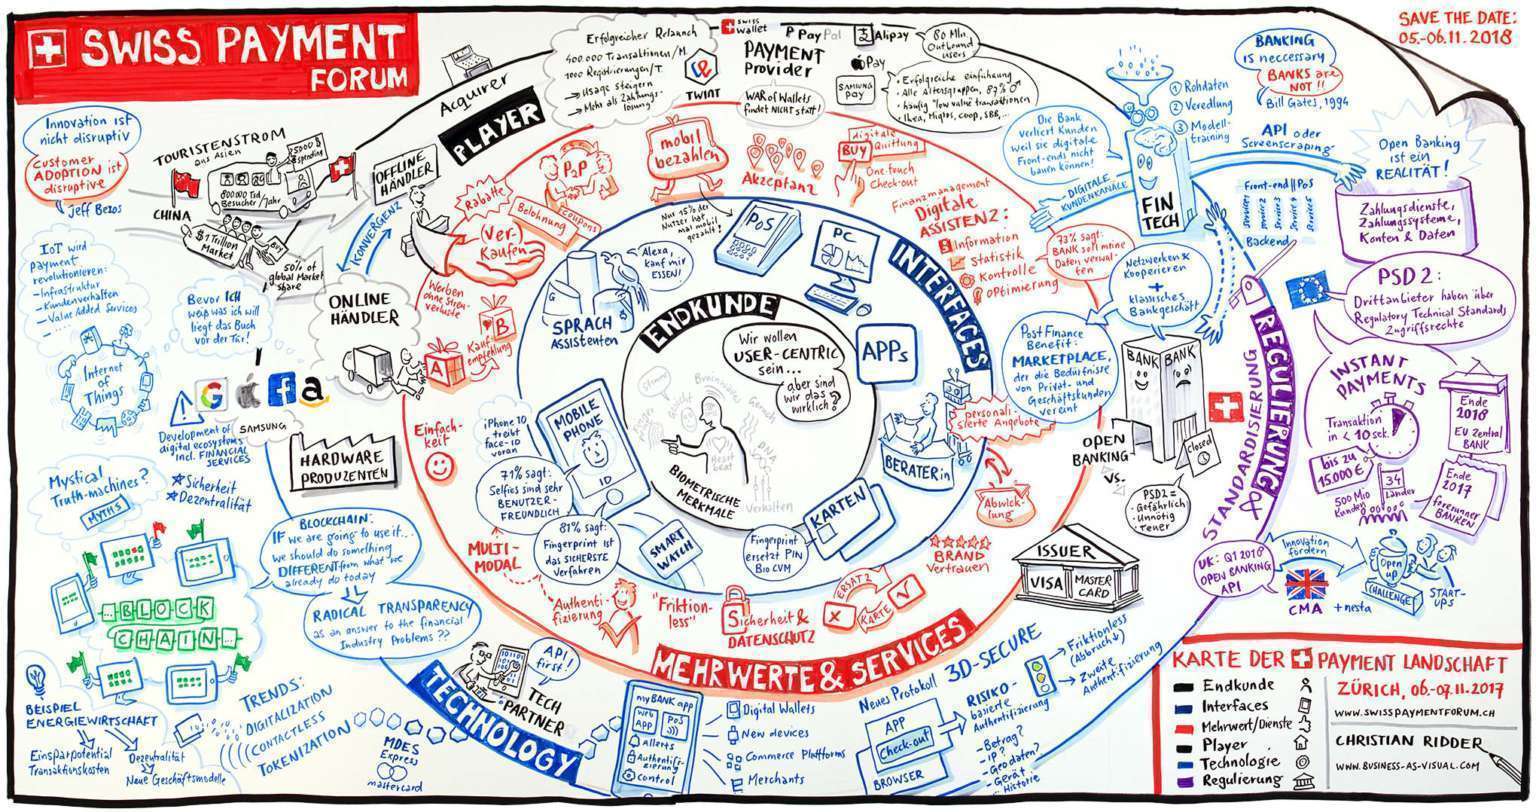 SWISS PAYMENT
FORUM
SAVE THE DATE:
05.-06.11.2018
Innovation isT
nicht disruptiv
Customer
ADOPTION ist
disruptive
Jeff Bezos
TOURISTENSTROM
aus Asien
5000$
spending
800000 Tsd.
Besucher/Jahr
CHINA
$1 Trillion
Market
BUY
50% of
global Market
share
IoT wird
payment
revolutionieren:
- Infrastruktur
- Kundenverhalten
- Value Added Services
Internet
of
Things
Bevor ICH
weiß was ich will
liegt das Buch
vor der Tür!
KONVERGENZ
OFFLINE
HÄNDLER
ONLINE
HÄNDLER
G
f
a
Development of
digital ecosystems
incl. FINANCIAL
SERVICES
Sicherheit
Dezentralität
SAMSUNG
HARDWARE
PRODUZENTEN
Mystical
Truth-machines?
MYTHS
BLOCK
CHAIN
BLOCKCHAIN:
IF we are going to use it...
we should do something
DIFFERENT from what we
already do today
RADICAL TRANSPARENCY
as an answer to the financial
Industry Problems ??
BEISPIEL
ENERGIEWIRTSCHAFT
Einsparpotential
Transaktionskosten
Dezentralität
Neue Geschäftsmodelle
TRENDS:
DIGITALIZATION
CONTACTLESS
TOKENIZATION
MDES
Express
mastercard
TECHNOLOGY
API
first!
TECH
PARTNER
myBANK app
web
APP
PoS
Allerts
Authentifi-
zierung
control
Digital Wallets
New devices
Commerce Platforms
Merchants
Acquirer
PLAYER
Erfolgreicher Relaunch
400.000 Transaktionen/M.
1000 Registrierungen/T.
Usage steigern
Mehr als Zahlungs-
lösung
TWINT
swiss
wallet
PayPal
Alipay
80 Mln.
Outbound
users
PAYMENT
Provider
Pay
SAMSUNG
pay
WAR of Wallets
findet NICHT statt!
- Erfolgreiche einführung
- Alle Altersgruppen, 87% ♂
- häufig "low value" transaktionen
- Ikea, Migros, coop, SBB,...
Rabatte
Ver-
Kaufen
Belohnung
coupons
P2P
mobil
bezahlen
Akzeptanz
digitale
Quittung
BUY
One-touch
Check-out
Finanzmanagement
Digitale
ASSISTENZ:
Information
Statistik
Kontrolle
OPtimierung
73% sagt:
BANK soll meine
Daten verwal-
ten
Werben
ohne Streu-
verluste
A
B
Kauf-
empfehlung
Einfach-
keit
MULTI-
MODAL
Authenti-
fizierung
"Friktion-
less"
Sicherheit &
DATENSCHUTZ
ERSATZ
KARTE
BRAND
Vertrauen
Abwick-
lung
personali-
sierte Angebote
MEHRWERTE & SERVICES
Nur 15% der
Nutzer hat
mal mobil
gezahlt!
PoS
PC
INTERFACES
APPs
BERATERin
KARTEN
Fingerprint
ersetzt PIN
Bio CVM
SMART
WATCH
MOBILE
PHONE
ID
iPhone 10
treibt
face-ID
voran
71% sagt:
Selfies sind sehr
BENUTZER-
FREUNDLICH
81% sagt:
Fingerprint ist
das SICHERSTE
Verfahren
Alexa,
kauf mir
ESSEN!
G
SPRACH
ASSISTENTEN
ENDKUNDE
Wir wollen
USER-CENTRIC
sein...
aber sind
wir das
wirklich?
Stimme
Gesicht
Brainwaves
Geruch
DNA
Heart
beat
Verhalten
BIOMETRISCHE
MERKMALE
Die Bank
verliert Kunden
weil sie digitale
Front-ends nicht
bauen können!
DIGITALE
KUNDENKANÄLE
FIN
TECH
1 Rohdaten
2 Veredlung
3 Modell-
training
BANKING
is neccessary
BANKS are
NOT !!
Bill Gates, 1994
API oder
Screenscraping
Front-end || PoS
Service 1
Service 2
Service 3
Service 4
Service 5
Backend
Open Banking
ist ein
REALITÄT!
Zahlungsdienste,
Zahlungssysteme,
Konten & Daten
PSD2:
Drittanbieter haben über
Regulatory Technical Standards
Zugriffsrechte
Netzwerken &
Kooperieren
+
klassisches
Bankgeschäft
PostFinance
Benefit:
MARKETPLACE,
der die Bedürfnisse
von Privat- und
Geschäftskunden
vereint
BANK
BANK
Closed
OPEN
BANKING
vs.
PSD2=
- Gefährlich
- Unnötig
- Teuer
STANDARDISIERUNG
REGULIERUNG
INSTANT
PAYMENTS
Transaktion
in < 10 sek.
bis zu
15.000€
500 Mio
Kunden
34
Länder
Ende
2018
EU Zentral
BANK
Ende
2017
freiwillige
BANKEN
UK: Q1 2018
OPEN BANKING
API
Innovation
fördern
CMA + nesta
Open
up
CHALLENGE
START-
UPs
ISSUER
VISA
MASTER
CARD
3D-SECURE
Neues Protokoll
APP
Check-out
BROWSER
RISIKO-
basierte
Authentifizierung
- Betrag?
- IP?
- Geodaten?
- Gerät
- Historie
Friktionless
(Abbruch↓)
Zweite
Authentifizierung
KARTE DER PAYMENT LANDSCHAFT
Endkunde
Interfaces
Mehrwert/Dienste
Player
Technologie
Regulierung
ZÜRICH, 06.-07.11.2017
WWW.SWISSPAYMENTFORUM.CH
CHRISTIAN RIDDER
WWW.BUSINESS-AS-VISUAL.COM